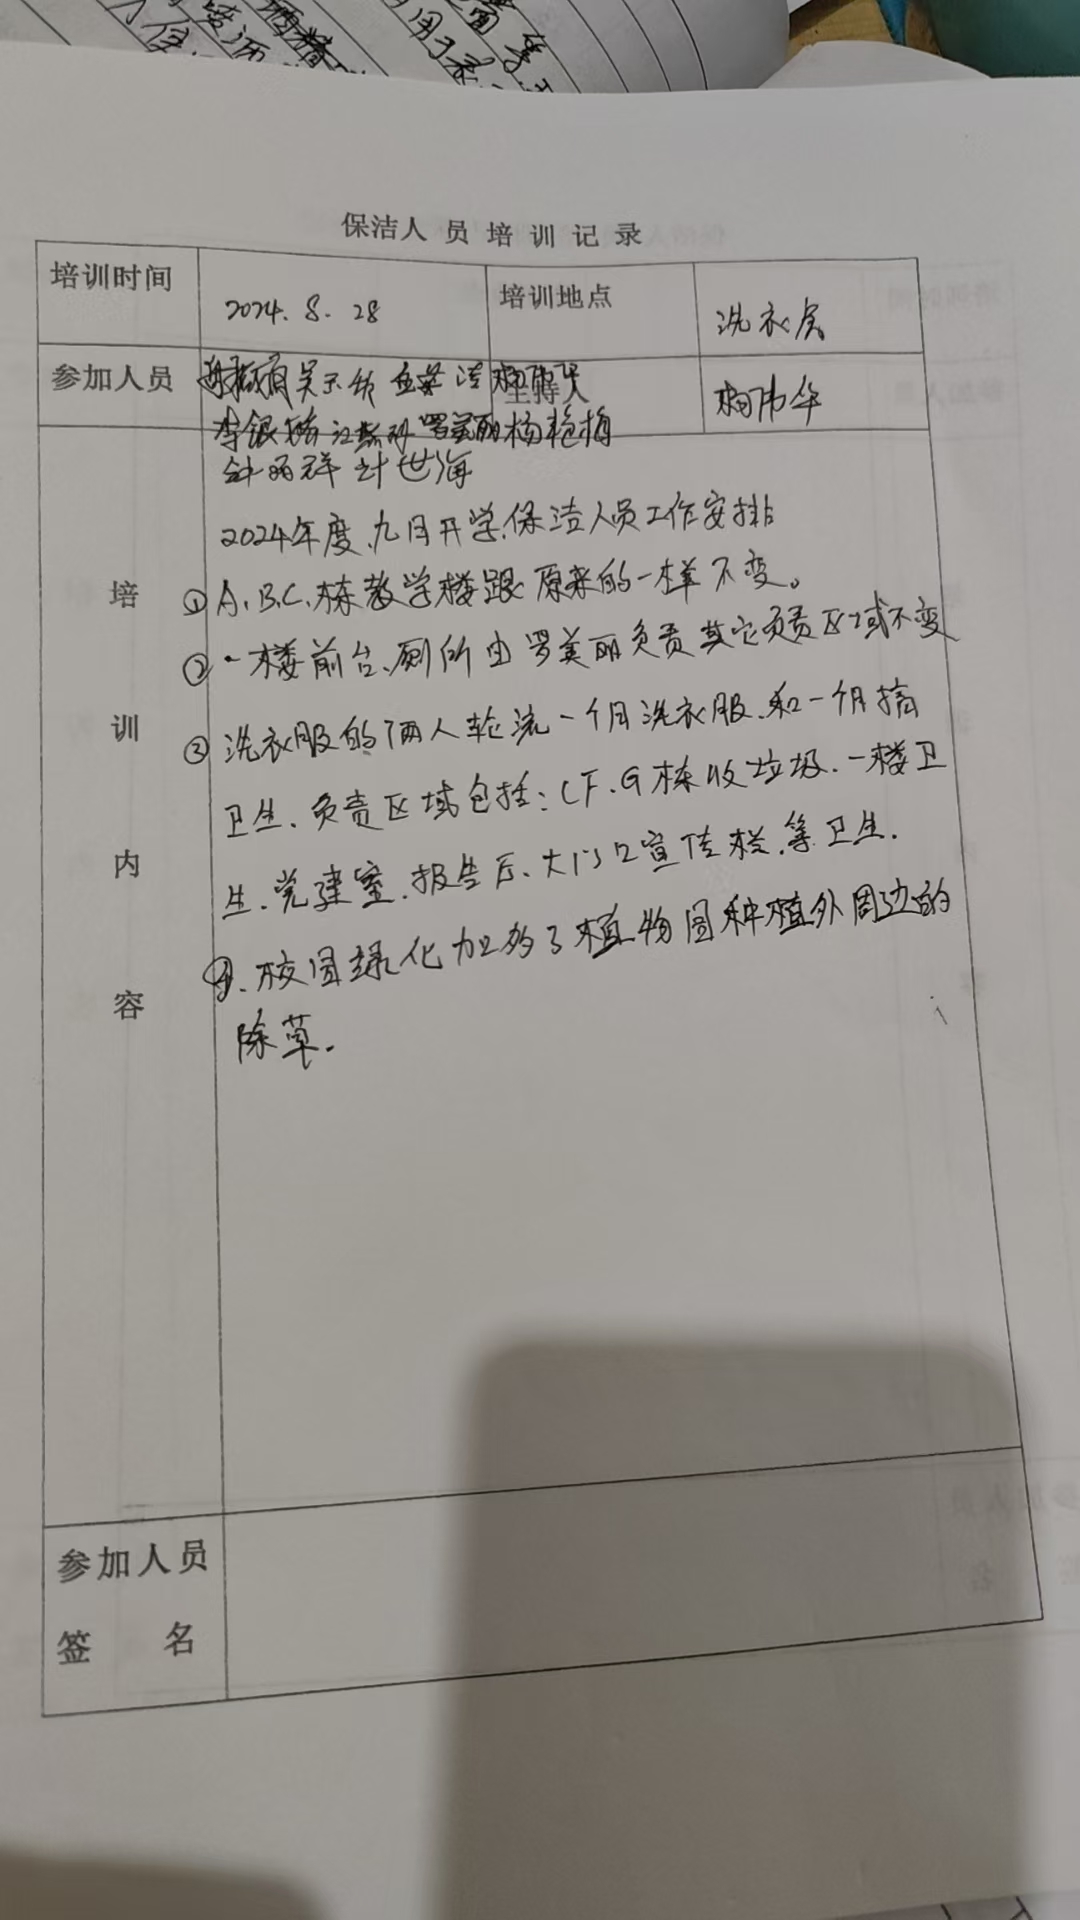 保洁人员培训记录
培训时间 2024.8.28 培训地点 洗衣房
参加人员 主持人 杨伟华
罗美丽 杨艳梅
钟丽群 叶世海
2024年度九月开学,保洁人员工作安排
培 ①A.B.C.栋教学楼跟原来的一样不变。
②一楼前台、厕所由罗美丽负责其它负责区域不变
训 ③洗衣服的俩人轮流一个月洗衣服.和一个月搞
卫生、负责区域包括:CF.G栋收垃圾.一楼卫
内 生.党建室.报告厅、大门口宣传栏.等卫生.
④.校园绿化加多了植物园种植外周边的
容 除草.
参加人员
签名